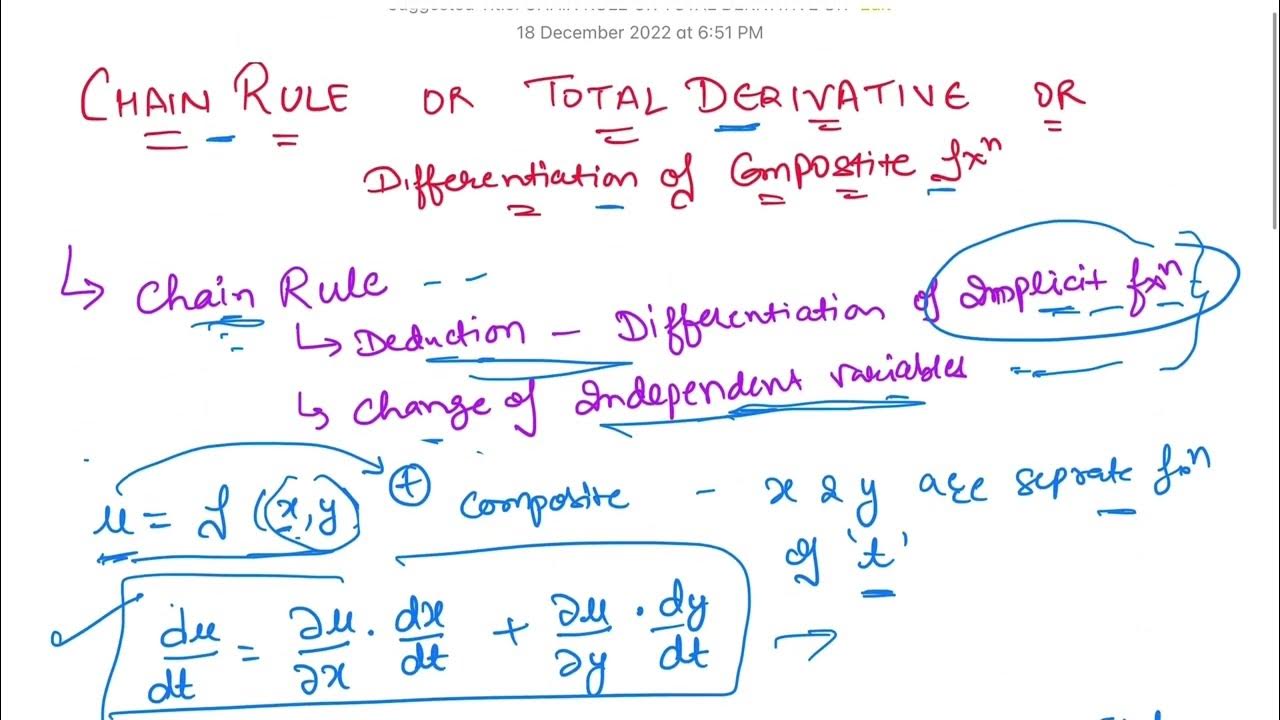 Suggested Title: CHAIN RULE OR TOTAL DERIVATIVE OR Edit
18 December 2022 at 6:51 PM
CHAIN RULE OR TOTAL DERIVATIVE OR
Differentiation of Compostite fxⁿ
↳ Chain Rule - -
↳ Deduction - Differentiation of Implicit fxⁿ
↳ Change of Independent variables
u = f (x, y) ⊕ composite - x & y are seprate fxⁿ
of 't'
du/dt = ∂u/∂x · dx/dt + ∂u/∂y · dy/dt →